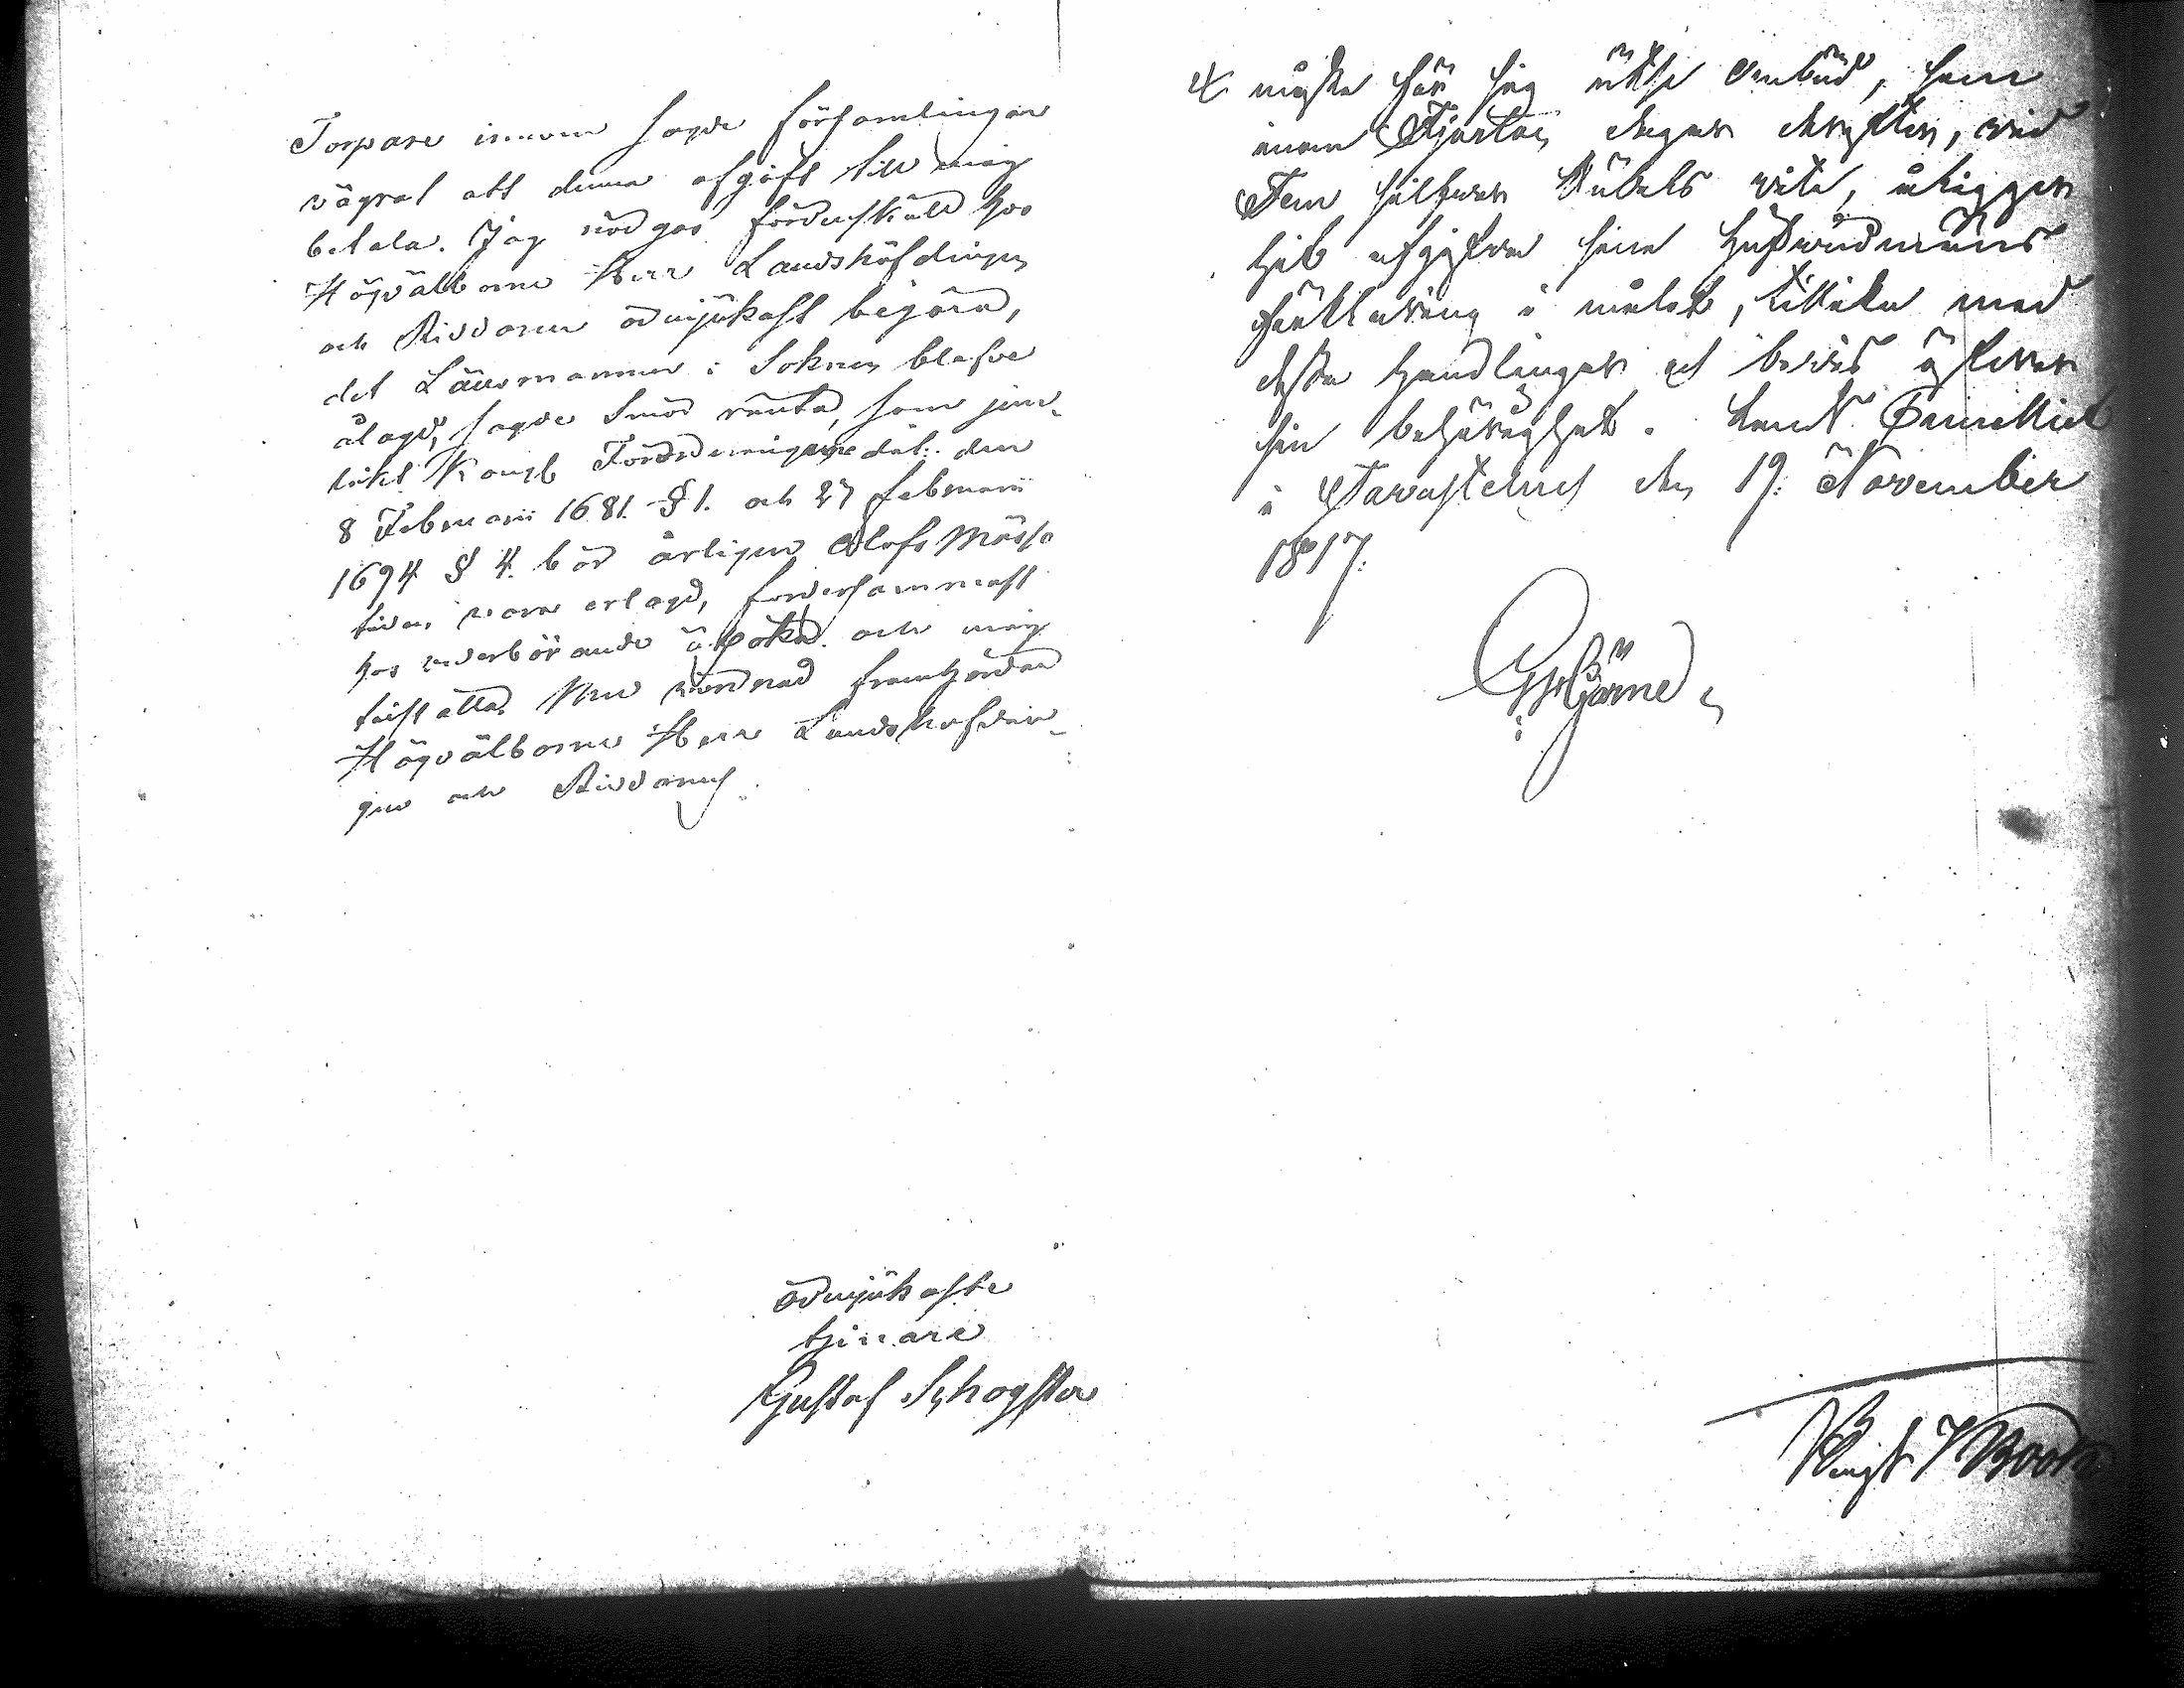 Torpare innom sagde församlingar
vägrat att denna afgift till mig
betala. Jag nödgas fördenskull hos
Högvälborne Herr Landshöfdingen
och Riddaren ödmjukast begära,
det Länsmannen i Soknen blefve
ålagd, sagde Smör ränta, som jem-
likt Kongl Förordningarne dat: den
8 Februarii 1681. § 1. och 27 Februarii
1694 § 4. bör årligen Olofs Mässo
tiden vara erlagd, fordersammast
hos vederbörande utsöka och mig
tillställa. Med vördnad framhärdar
Högvälborne Herr Landshöfdin-
gen och Riddarens
ödmjukaste
tjenare
Gustaf
måste för sig utse Ombud, som
inom Fjorton dagar derefter, vid
Fem silfver Rubels vite, åligger
hit afgifva sine Hufvudmäns
förklaring i målet, tillika med
desse handlingar och bevis öfver
sin behörighet. Lands Cancelliet
i Tavastehus den 19. November
1817.
Bengt